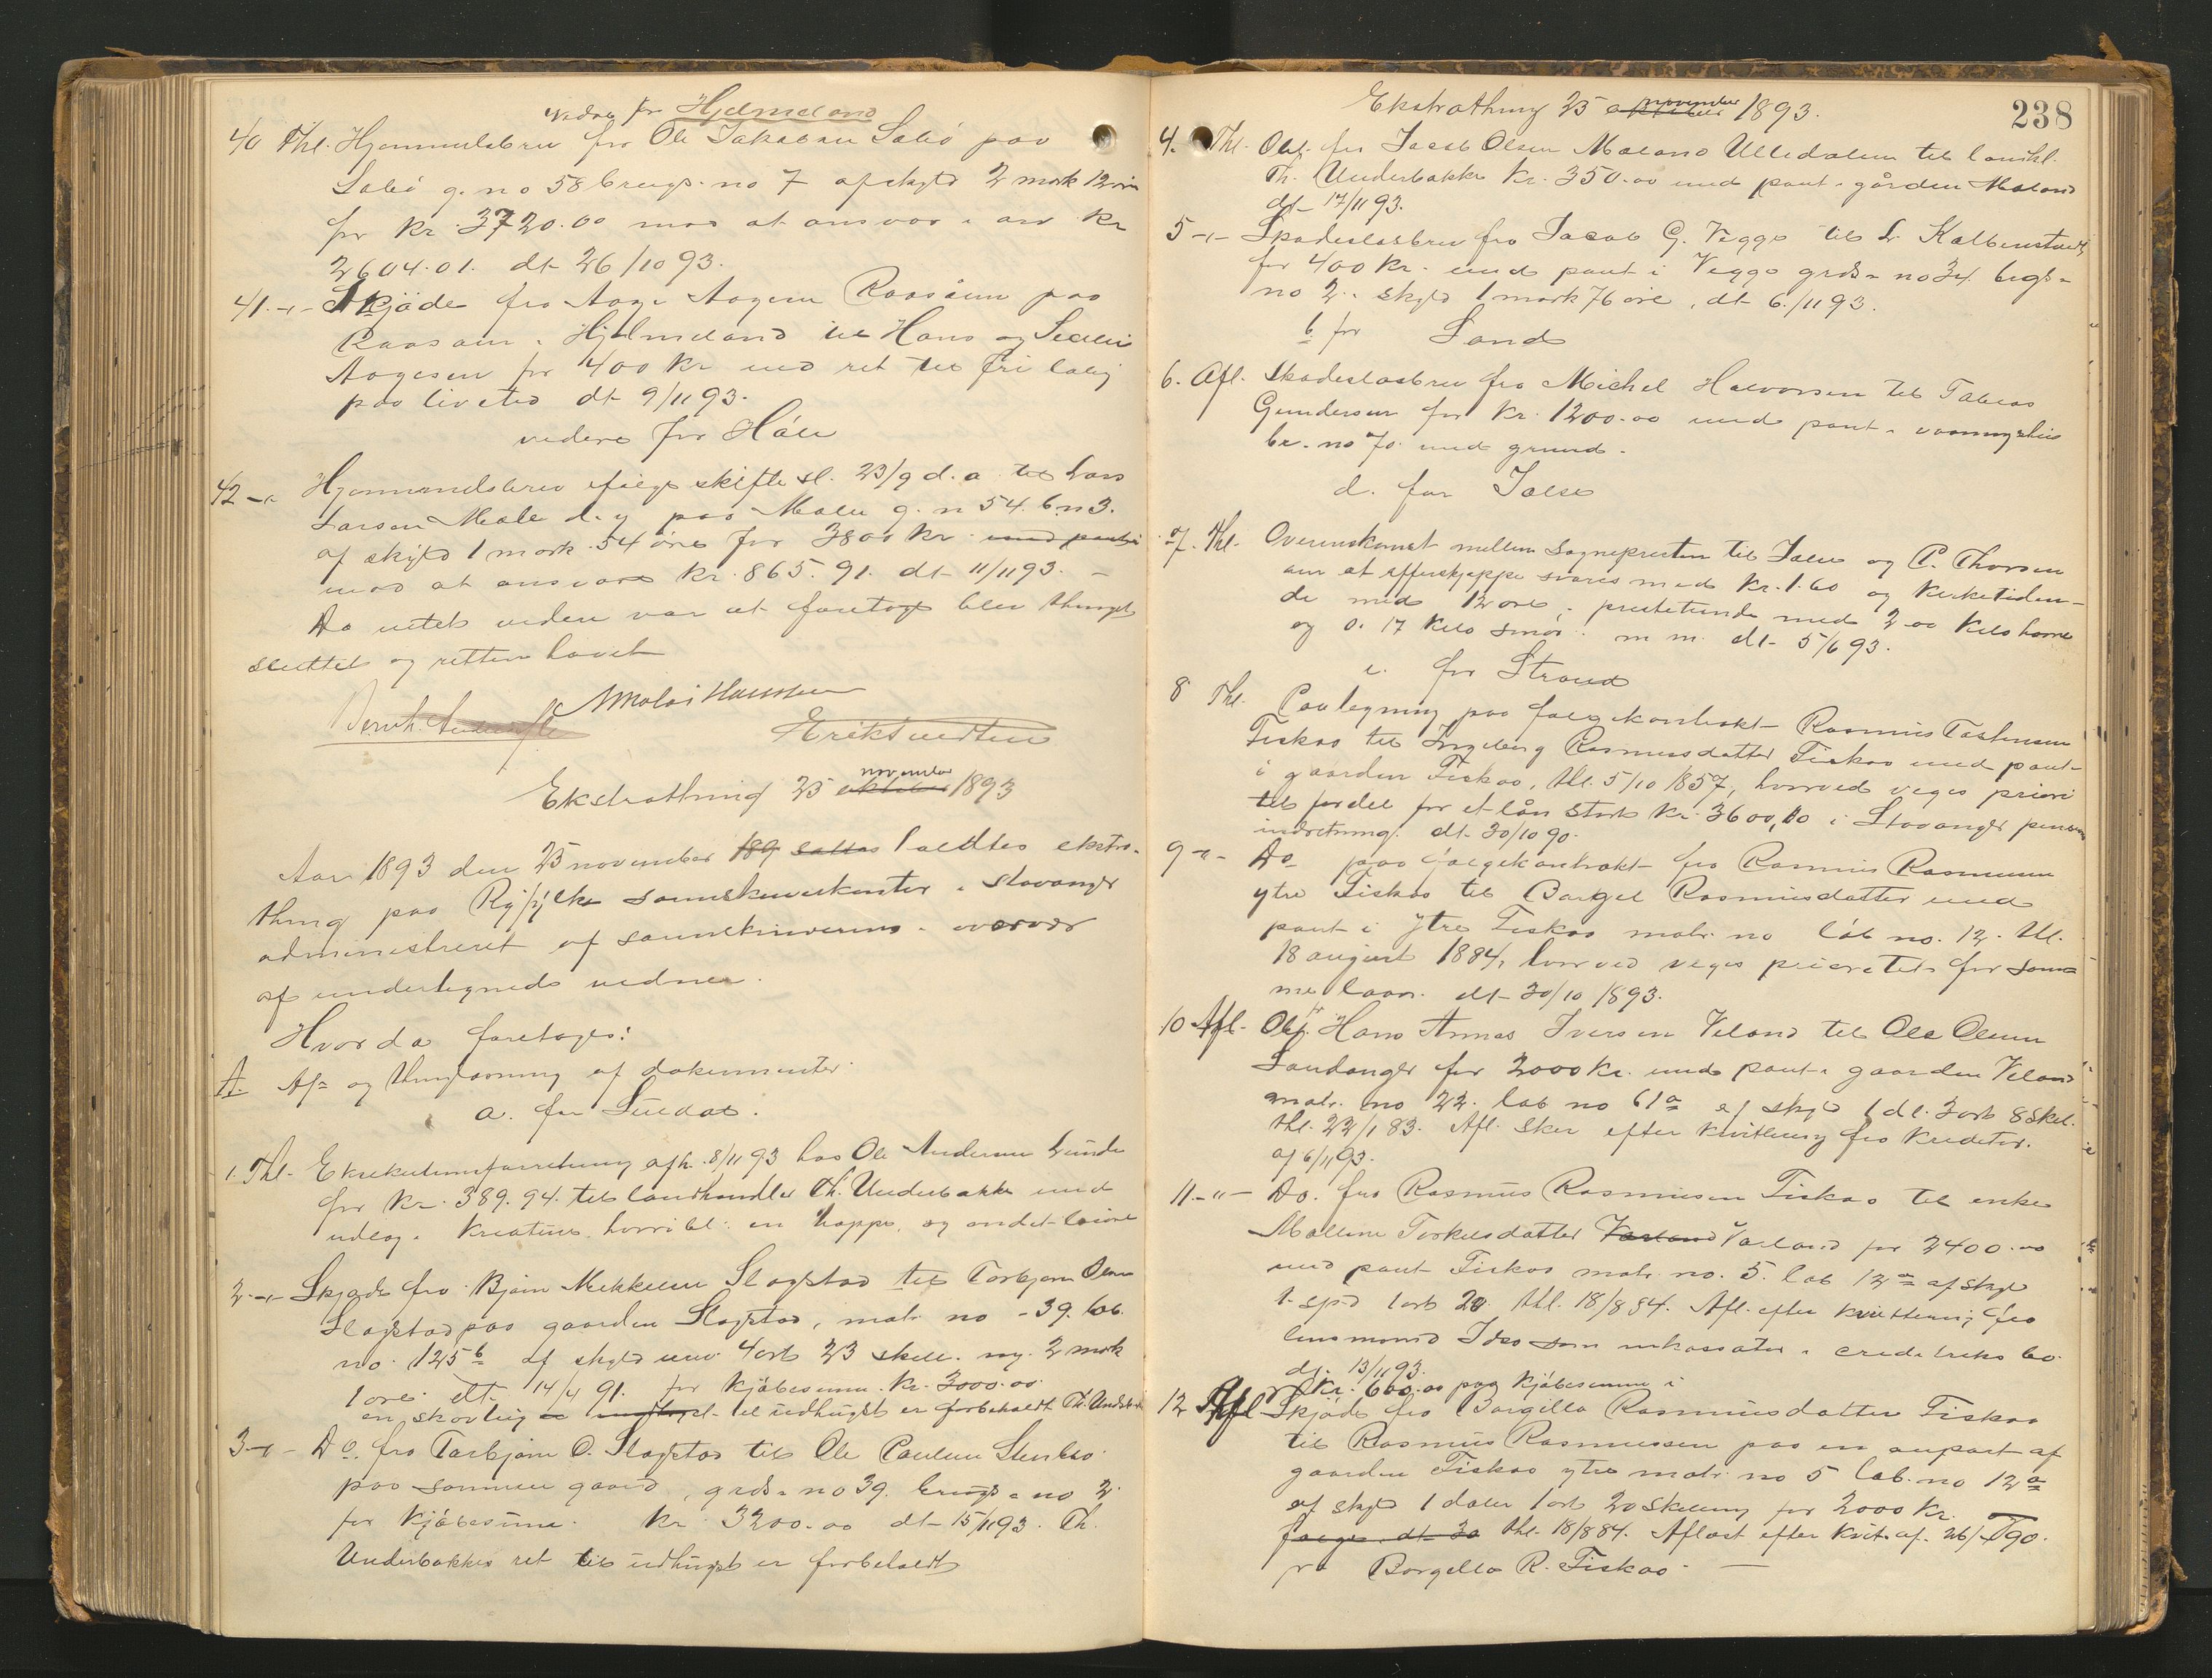 vedar for Hjelmeland
40 Thl. Hjemmelsbrev fra Ole Jakobsen Sabø paa
Sabø g. no 58 brugs. no 7 afskyld 2 mark 12 øre
for kr. 3720.00 mod at ansvar i arv kr
2604.01. dt 26/10 93.
41. -"- Skjøde fra Aage Aagesen Raasoen paa
Raasoen i Hjelmeland til Hans og
Aagesen for 400 kr med ret til fri bolig
paa livstid dt 9/11 93.
videre for Høle
42 -"- Hjemmelsbrev ifølge skifte sl. 23/9 d. a. til Lars
Larsen Mæle d. y paa Mæle g. n 54. b. n 3.
af skyld 1 mark 54 øre for 3800 kr med pant i
mod at ansvare kr. 865.91. dt 11/11 93. -
Da intet videre var at foretage blev thinget
sluttet og retten hævet
Nikolai Hansen
Erik Knudsen
Ekstrathing 25 oktober november 1893
Aar 1893 den 25 november 189 sattes holdtes ekstra-
thing paa Ryfylke sorenskriverkontor i Stavanger
administreret af sorenskriveren i overvær
af undertegnede vidner.
Hvor da foretoges:
A. Af- og thinglæsning af dokumenter.
a. for Suldal.
1. Thl. Eksekutionsforretning afh. 8/11 93 hos Ole Andersen Lunde
for kr. 389.94 til landhandler Th. Underbakke med
udlæg i kreature, hvoribl. en hoppe og andet løsøre
2. -"- Skjøde fra Bjørn Mikkelsen Slagstad til Torbjørn Olsen
Slagstad paa gaarden Slagstad, matr. no - 39. løb.
no. 125 b af skyld 4 ort 23 skill. ny. 2 mark
1 øre dt. 14/4 91. for kjøbesum. kr. 3000.00.
en skovteig til udhugst er forbeholdt Th. Underbakke
3 -"- Do. fra Torbjørn O. Slagstad til Ole Paulsen Stenkso
paa samme gaard, grds- no 39. brugs- no 2.
for kjøbesum. kr. 3200.00 dt 15/11 93. Th.
Underbakkes ret til udhugst er forbeholdt
Ekstrathing 25 oktober november 1893.
238
4. Thl. Obl. fra Jacob Olsen Maeland Ulledalen til landhl.
Th. Underbakke kr. 350.00 med pant i gården Maeland
dt 17/11 93.
5 -"- Skadesløsbrev fra Jacob G. Vegge til L. Kolbenstvedt
for 400 kr. med pant i Vegge grds- no 34 brgs-
no 2. skyld 1 mark 76 øre, dt 6/11 93.
b for Sand
6. Afl. Skadesløsbrev fra Michel Halvorsen til Tobias
Gundersen for kr. 1200.00 med pant i vaaningshus
br. no 70. med grund.
d. for Jælse
7. Thl. Overenskomst mellem sognepresten til Jælse og P. Thorsen
om at offerskjeppe svares med kr. 1.60 og kirketien-
de med 12 øre, prestetiende med 2.00 kilo havre
og 0.17 kilo smør m m. dt 5/6 93.
e. for Strand
8 Thl. Paategning paa føderkontrakt Rasmus Tostensen
Fiskaa til Ingeborg Rasmusdatter Fiskaa med pant
i gaarden Fiskaa, thl. 5/10 1857, hvorved viges priori
til fordel for et lån stort kr. 3600,00 i Stavanger
indretning. dt 30/10 90.
9 -"- Do paa føderkontrakt fra Rasmus Rasmussen
ytre Fiskaa til Borgel Rasmusdatter med
pant i ytre Fiskaa matr. no løb no. 12. thl.
18 august 1884, hvorved viges prioritet for sam-
me laan. dt 30/10 1893.
10 Afl. Obl. Hans Asmas Iversen Veland til Ole Olsen
Sandanger for 2000 kr. med pant i gaarden Veland
matr. no 22. løb no 61 a af skyld 1 dl. 3 ort 8 skil.
thl. 22/1 83. Afl. sker efter kvittering fra kreditor.
af 6/11 93.
11. -"- Do. fra Rasmus Rasmussen Fiskaa til enke
Mallene Torkelsdatter Varland Varland for 2400.00
med pant Fiskaa matr. no. 5. løb 12 a af skyld
1 spd 1 ort 20. thl. 18/8 84. Afl. efter kvittering fra
lensmand Idsø som inkassator i creditricks bo.
dt. 13/11 93.
kr. 600.00 paa kjøbesummen i
12 Afl Skjøde fra Borgilla Rasmusdatter Fiskaa
til Rasmus Rasmussen paa en anpart af
gaarden Fiskaa ytre matr. no 5 løb. no 12 a
af skyld 1 daler 1 ort 20 skilling for 2000 kr.
thl. 18/8 84. Aflæst efter kvit. af. 26/ 90.
fra Borgilla R. Fiskaa. -